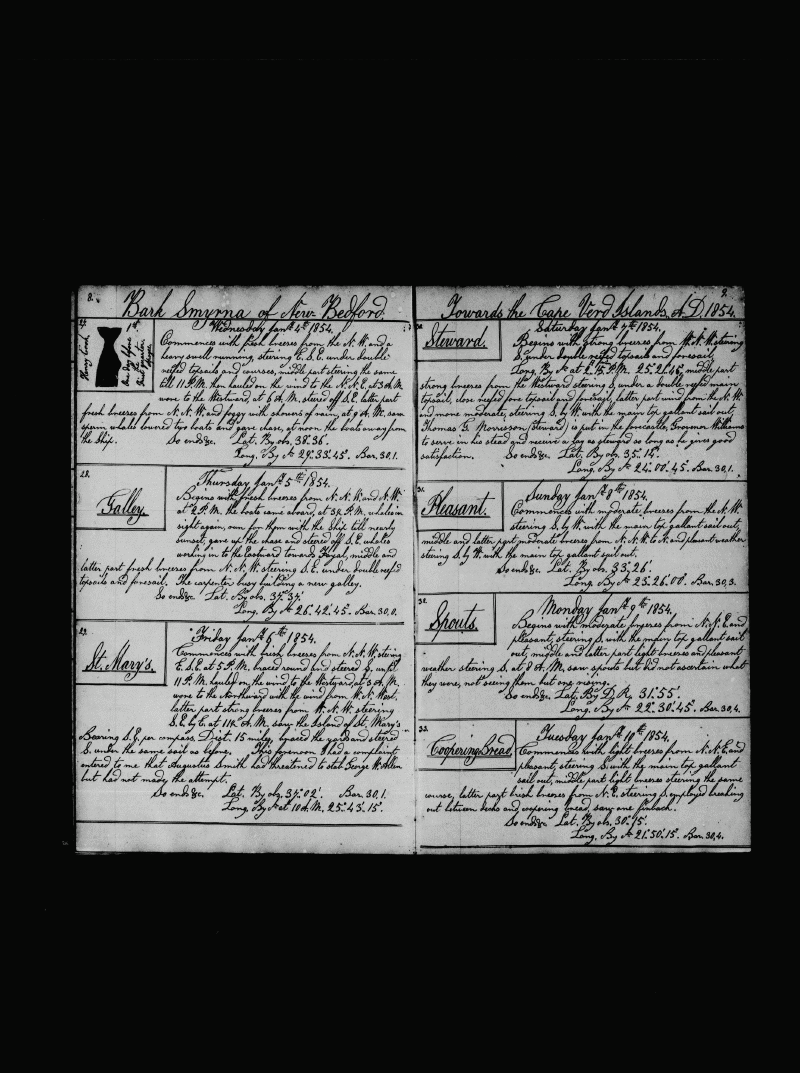 8.
Bark Smyrna of New Bedford
27.
1st
One day before
Wednesday Jany 4th 1854.
Commences with fresh breezes from the N.W. and a
heavy swell running, steering E.S.E. under double
reefed topsails and courses, middle part steering the same
till 11 P.M. then hauled on the wind to the N.N.E. at 3 A.M.
wore to the Westward, at 6 A.M. steered off S.E. latter part
fresh breezes from N.N.W. and foggy with showers of rain, at 9 A.M. saw
sperm whales lowered two boats and gave chase, at noon the boats away from
the ship. So ends &c. Lat. By obs. 38°.36'.
Long. By Ar 29°.33'.45". Bar. 30,1.
28.
Galley.
Thursday Jany 5th 1854.
Begins with fresh breezes from N.N.W. and N.W.
at 2 P.M. the boats came aboard, at 3½ P.M. whales in
sight again, ran for them with the ship till nearly
sunset, gave up the chase and steered off S.E. whales
working in to the Eastward towards Fayal, middle and
latter part fresh breezes from N.N.W. steering S.E. under double reef'd
topsails and foresail. The carpenter busy building a new galley.
So ends &c. Lat. By obs. 37°.37'.
Long. By Ar 26°.42'.45". Bar. 30,0.
29.
St. Mary's.
Friday Jany 6th 1854.
Commences with fresh breezes from N.N.W. steering
E.S.E. at 5 P.M. braced round and steered S. until
11 P.M. hauled on the wind to the Westward, at 3 A.M.
wore to the Northward with the wind from W.N. West,
latter part strong breezes from W.N.W. steering
S.E. by E. at 11½ A.M. saw the Island of St. Mary's
Bearing S.E. per compass. Dist. 15 miles, braced the yards and steered
S. under the same sail as before. This forenoon I had a complaint
entered to me that Augustus Smith had threatened to stab George W. Allen
but had not made the attempt.
So ends &c. Lat. By obs. 37°.02'. Bar. 30,1.
Long. By Ar at 10 A.M. 25°.43'.15".
9.
Towards the Cape Verd Islands, A.D. 1854.
30.
Steward.
Saturday Jany 7th 1854.
Begins with strong breezes from W.N.W. steering
S. under double reefed topsails and foresail,
Long. By Ar at P.M. 25°.21'.45", middle part
strong breezes from the Westward steering S. under a double reefed main
topsail, close reefed fore topsail and foresail, latter part wind from the N.W.
and more moderate, steering S. by W. with the main top gallant sail out,
Thomas G. Morrisson (steward) is put in the forecastle, Grovnor Williams
to serve in his stead and receive a lay as steward so long as he gives good
satisfaction. So ends &c. Lat. By obs. 35°.14'.
Long. By Ar 24°.00'.45". Bar. 30,1.
31.
Pleasant.
Sunday Jany 8th 1854.
Commences with moderate breezes from the N.W.
steering S. by W. with the main top gallant sail out,
middle and latter part moderate breezes from N.N.W. to N. and pleasant weather
steering S. by W. with the main top gallant sail out.
So ends &c. Lat. By obs. 33°.26'.
Long. By Ar 23°.26'.00". Bar. 30,3.
32.
Spouts.
Monday Jany 9th 1854.
Begins with moderate breezes from N.N.E. and
pleasant, steering S. with the main top gallant sail
out, middle and latter part light breezes and pleasant
weather steering S. at 8 A.M. saw spouts but did not ascertain what
they were, not seeing them but one rising.
So ends &c. Lat. By D.R. 31°.55'.
Long. By Ar 22°.30'.45". Bar. 30,4.
33.
Coopering Bread.
Tuesday Jany 10th 1854.
Commences with light breezes from N.N.E. and
pleasant, steering S. with the main top gallant
sail out, middle part light breezes steering the same
course, latter part brisk breezes from N.E. steering S. employed breaking
out between decks and coopering bread, saw one finback.
So ends &c. Lat. By obs. 30°.15'.
Long. By Ar 21°.50'.15". Bar. 30,4.